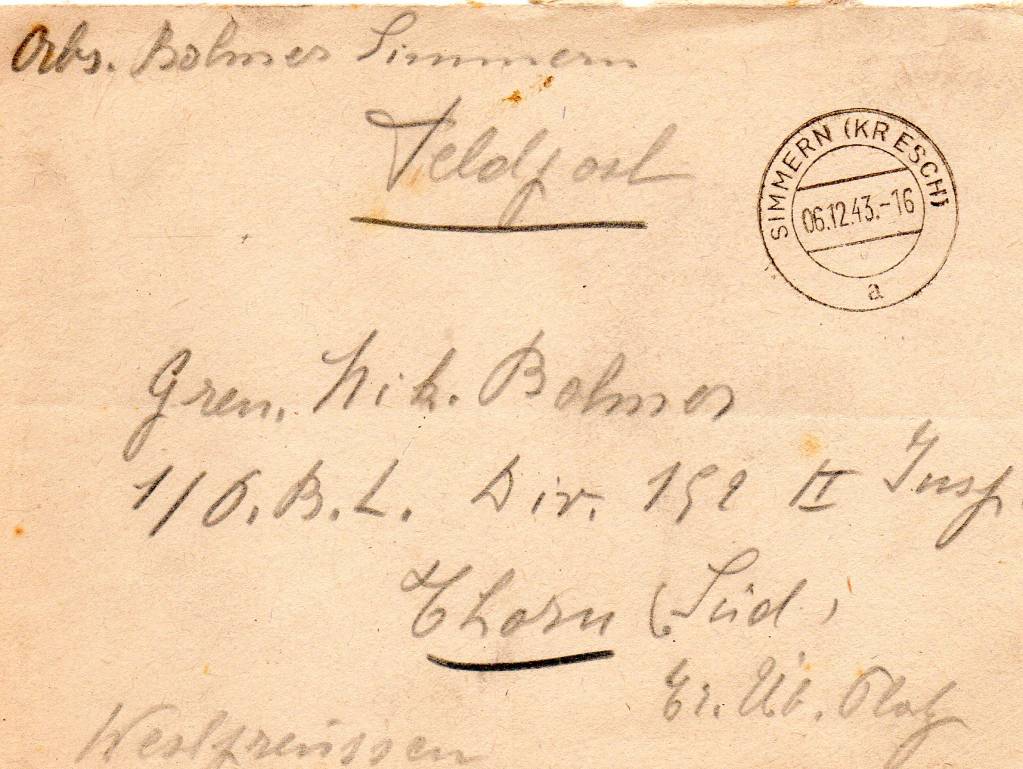 Abs. Bohmer Simmern
Feldpost
SIMMERN (KR ESCH)
06.12.43.-16
a
Gren. Nik. Bohmer
1/O.B.L. Div. 152 II Insp.
Thorn (Süd)
Tr. Üb. Platz
Westpreussen